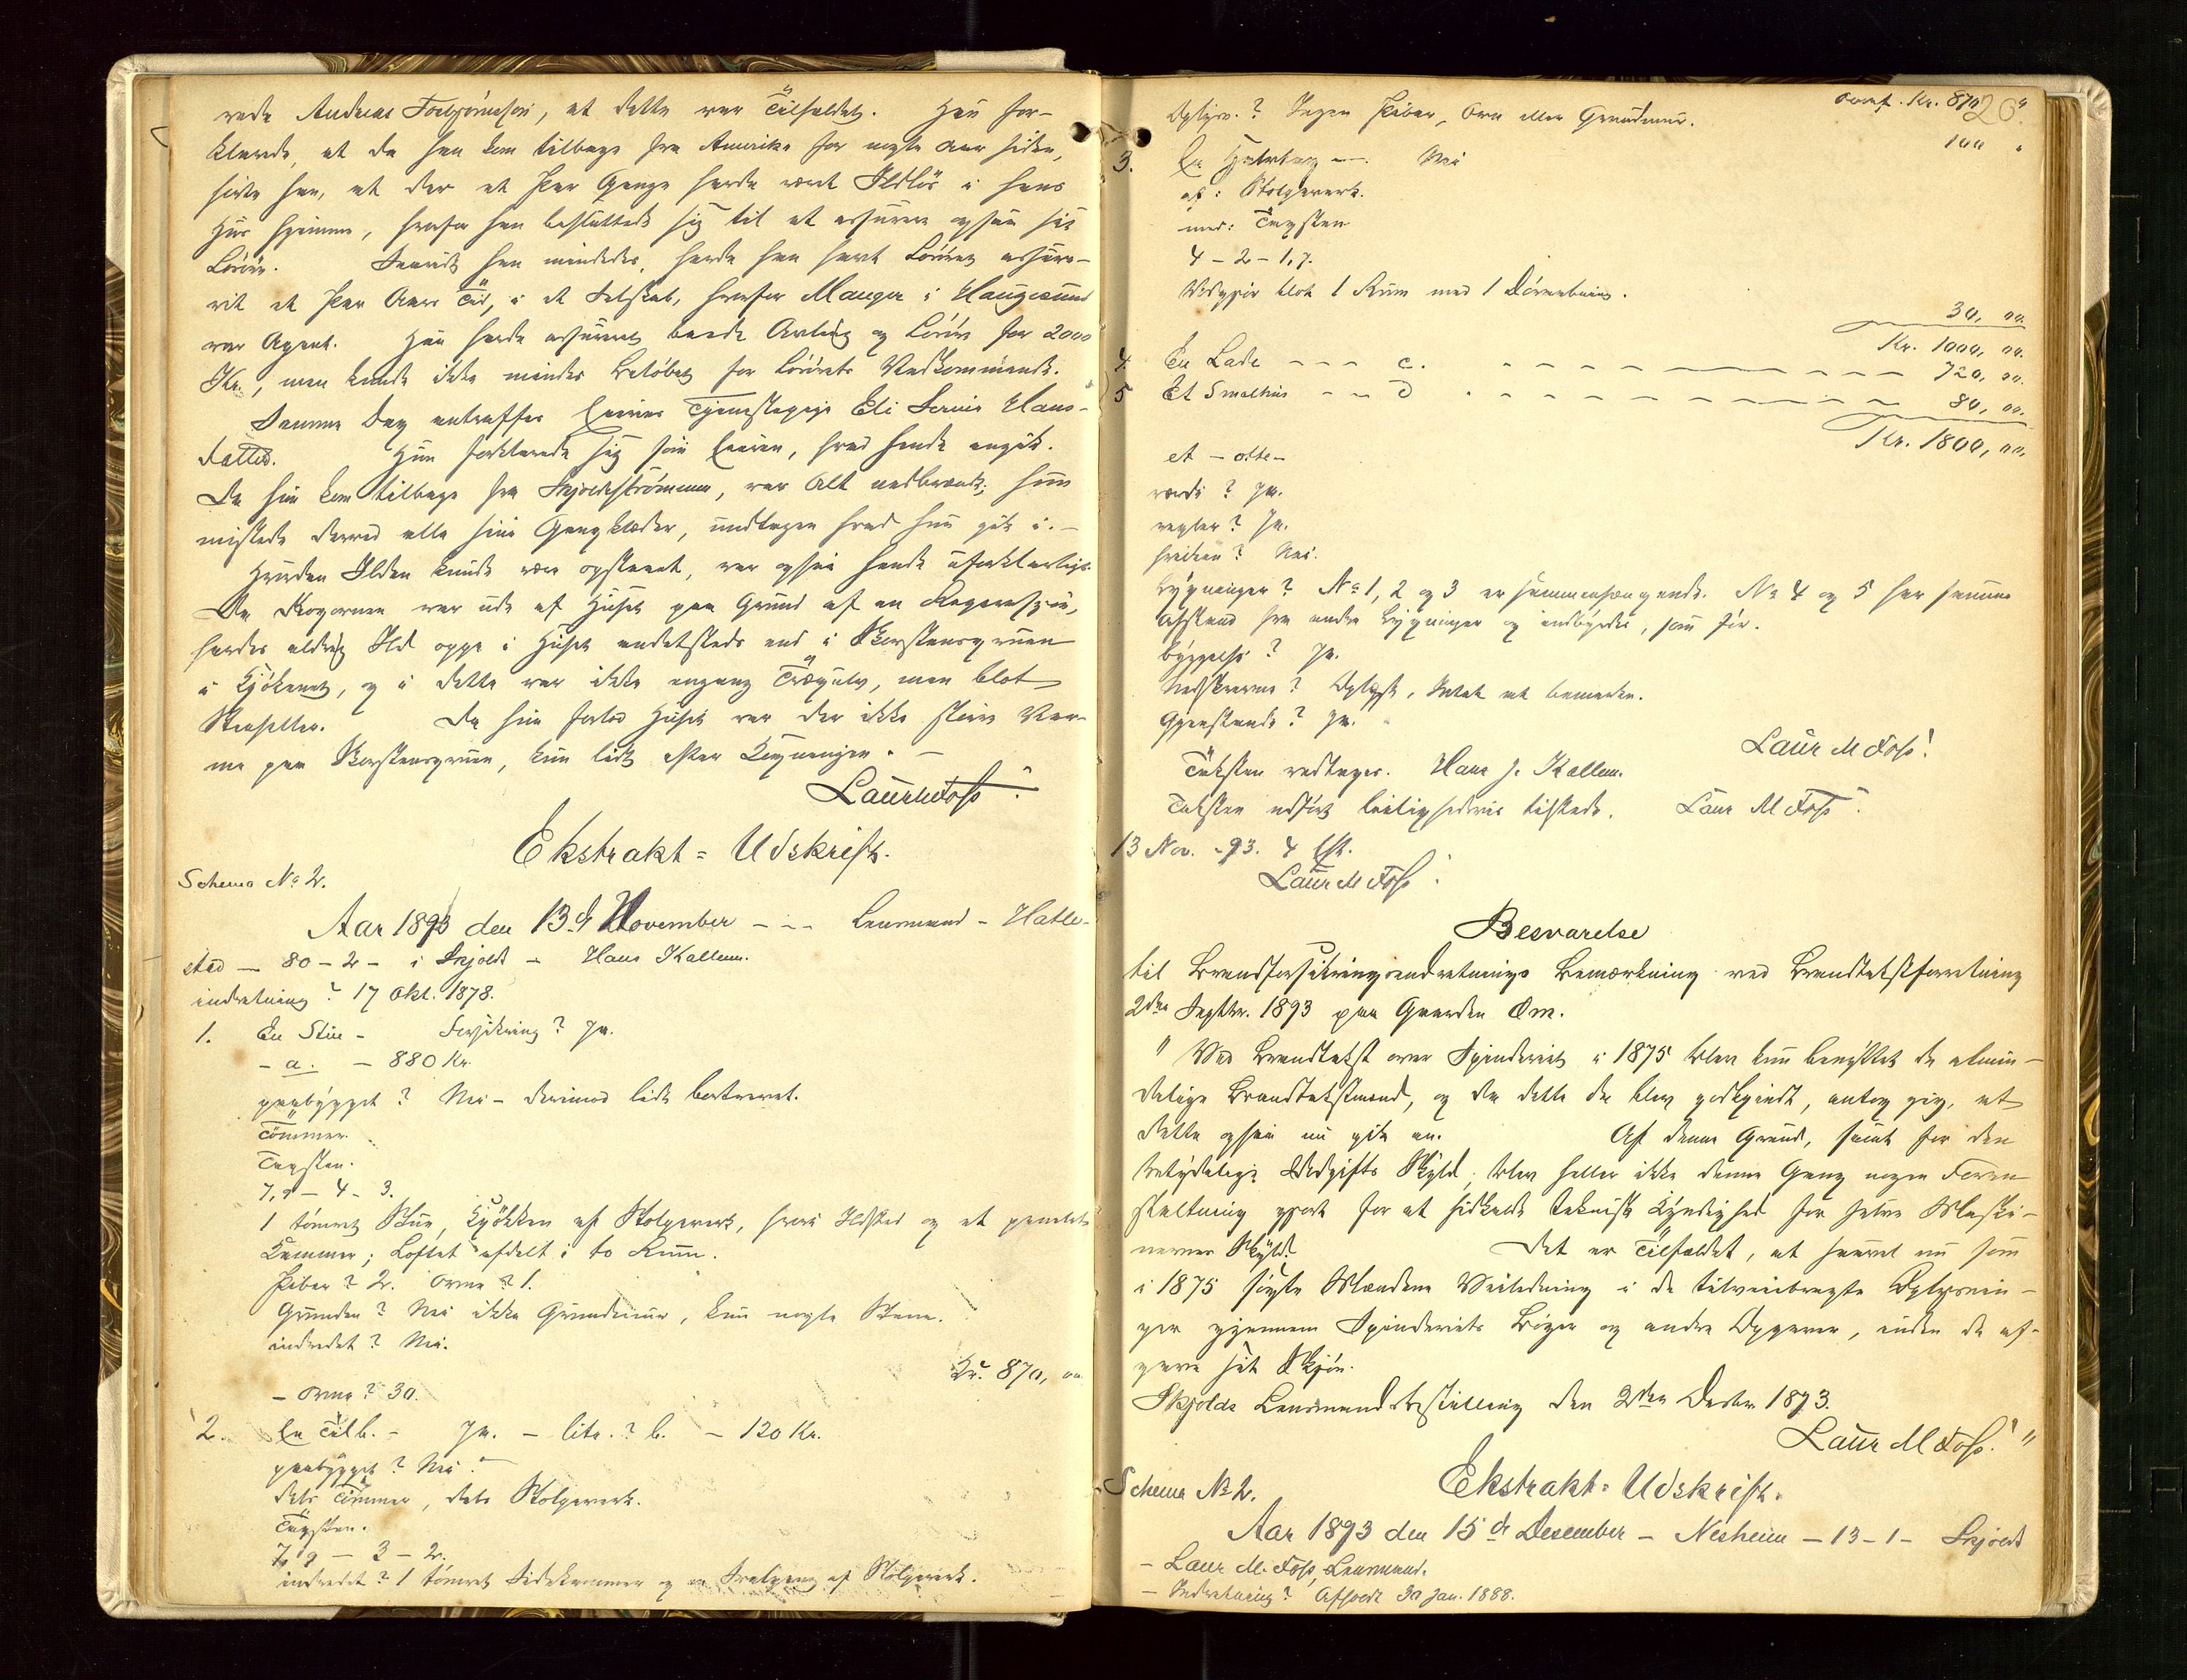 rede Andreas Torbjörnsen, at dette var Tilfældet. Han for-
klarede, at da han kom tilbage fra Amerika for nogle Aar siden,
sagde han, at der et Par Gange havde været Ildlös i hans
Hus hjemme, hvorfor han besluttede sig til at assurere ogsaa sit
Lösöre. Saavidt han mindedes, havde han havt Lösöret assure-
rit et Par Aars Tid, i et Selskab, hvorfor Mauger i Haugesund
var Agent. Han havde assureret baade Avling og Lösöre for 2000
Kr., men kunde ikke mindes Belöbet for Lösörets Vedkommende.
Samme Dag antraffes Eierens Tjenestepige Eli Serine Hans-
datter. Hun forklarede sig som Eieren, hvad hende angik.
Da hun kom tilbage fra Skjoldestrømmen, var Alt nedbrændt; hun
mistede derved alle sine Gangklæder, undtagen hvad hun gik i. –
Hvordan Ilden kunde være opstaaet, var ogsaa hende uforklarligt.
Da Kogovnen var ude af Huset paa Grund af en Reparasjon,
havdes aldrig Ild oppe i Huset andetsteds end i Skorstensgruen
i Kjökkenet, og i dette var ikke engang Trægulv, men blot
Stenheller. Da hun forlod Huset var der ikke större Var-
me paa Skorstensgruen, kun lidt efter Kogningen. –
Laur M Foss
Ekstrakt-Udskrift.
Schema No 2.
Aar 1893 den 13de November – – – Lensmand – Hatle-
stad – 80 – 2 – i Skjold – Hans Kallem.
indretning? 17 Okt. 1878.
1. En Stue – Forsikring? Ja.
– a. – 880 Kr
paabygget? Nei – derimod lidt borttraat.
Tömmer.
Tagsten.
7,9 – 4 – 3.
1 tömret Stue, Kjökken af Stolpeverk, hvori Ildsted og et panelet
Kammer; Loftet afdelt i to Rum.
Piber? 2. Ovne? 1.
Grunden? Nei ikke Grundmur, kun nogle Stene.
indredet? Nei.
Kr. 870, 00
– Ovne? 30.
2. En Tilb. – Ja. – litr.? b. – 120 Kr.
paabygget? Nei.
dels Tömmer, dels Stolpeverk.
Tagsten.
7,9 – 3 – 2.
indredet? 1 tömret Sidekammer og en Svalgang af Stolpeverk.
Overf. Kr. 870 "
26.
Oplysn.? Ingen Piber, Ovn eller Grundmur.
100 "
3. En Hjelptag –. Nei
af: Stolpeverk.
med: Tagsten
4 – 2 – 1,7.
Udgjør blot 1 Rum med 1 Døraabning.
30, 00.
Kr. 1000, 00.
4. En Lade – – – c. – – – – – – 720, 00.
5 Et Smalhus – – d – – – – – – 80, 00.
Kr. 1800, 00.
et – otte –
værdi? Ja.
regler? Ja.
hvilken? Nei.
bygninger? No 1, 2 og 3 er sammenhængende. No 4 og 5 har samme
Afstand fra andre Bygninger og indbyrdes, som før.
byggelse? Ja.
Nedskrevne? Oplyst, Intet at bemærke.
Gjenstande? Ja.
Laur M Foss!
Taksten vedtages. Hans J. Kallem.
Taksten udført lovlighedvis tilstede. Laur M Foss.
13 Nov. -93. 4 Eft.
Laur M Foss
Besvarelse
til Brandforsikringsindretnings Bemærkning ved Brandtakstforretning
2den Septbr. 1893 paa Gaarden Øm.
" Ved Brandtakst over Spinderiet i 1875 blev kun benyttet de almin-
delige Brandtakstmænd, og da dette da blev godkjendt, antog jeg, at
dette ogsaa nu gik an. Af denne Grund, samt for den
betydelige Udgifts Skyld, blev heller ikke denne Gang nogen Foran
staltning gjort for at tilkalde teknisk Kyndighed for selve Maski-
nernes Skyld. Det er Tilfældet, at saavel nu som
i 1875 søgte Mændene Veiledning i de tilveiebragte Oplysnin-
ger gjennem Spinderiets Bøger og andre Opgaver, inden de af-
gave sit Skjøn.
Skjolds Lensmandsbestilling den 2den Decbr. 1893.
Laur M Foss. "
Schema No 2. Ekstrakt-Udskrift.
Aar 1893 den 15de Desember – Nesheim – 13 – 1 – Skjold
– Laur M. Foss, Lensmand.
– Indretning? Afholdt 30 Jan. 1888.